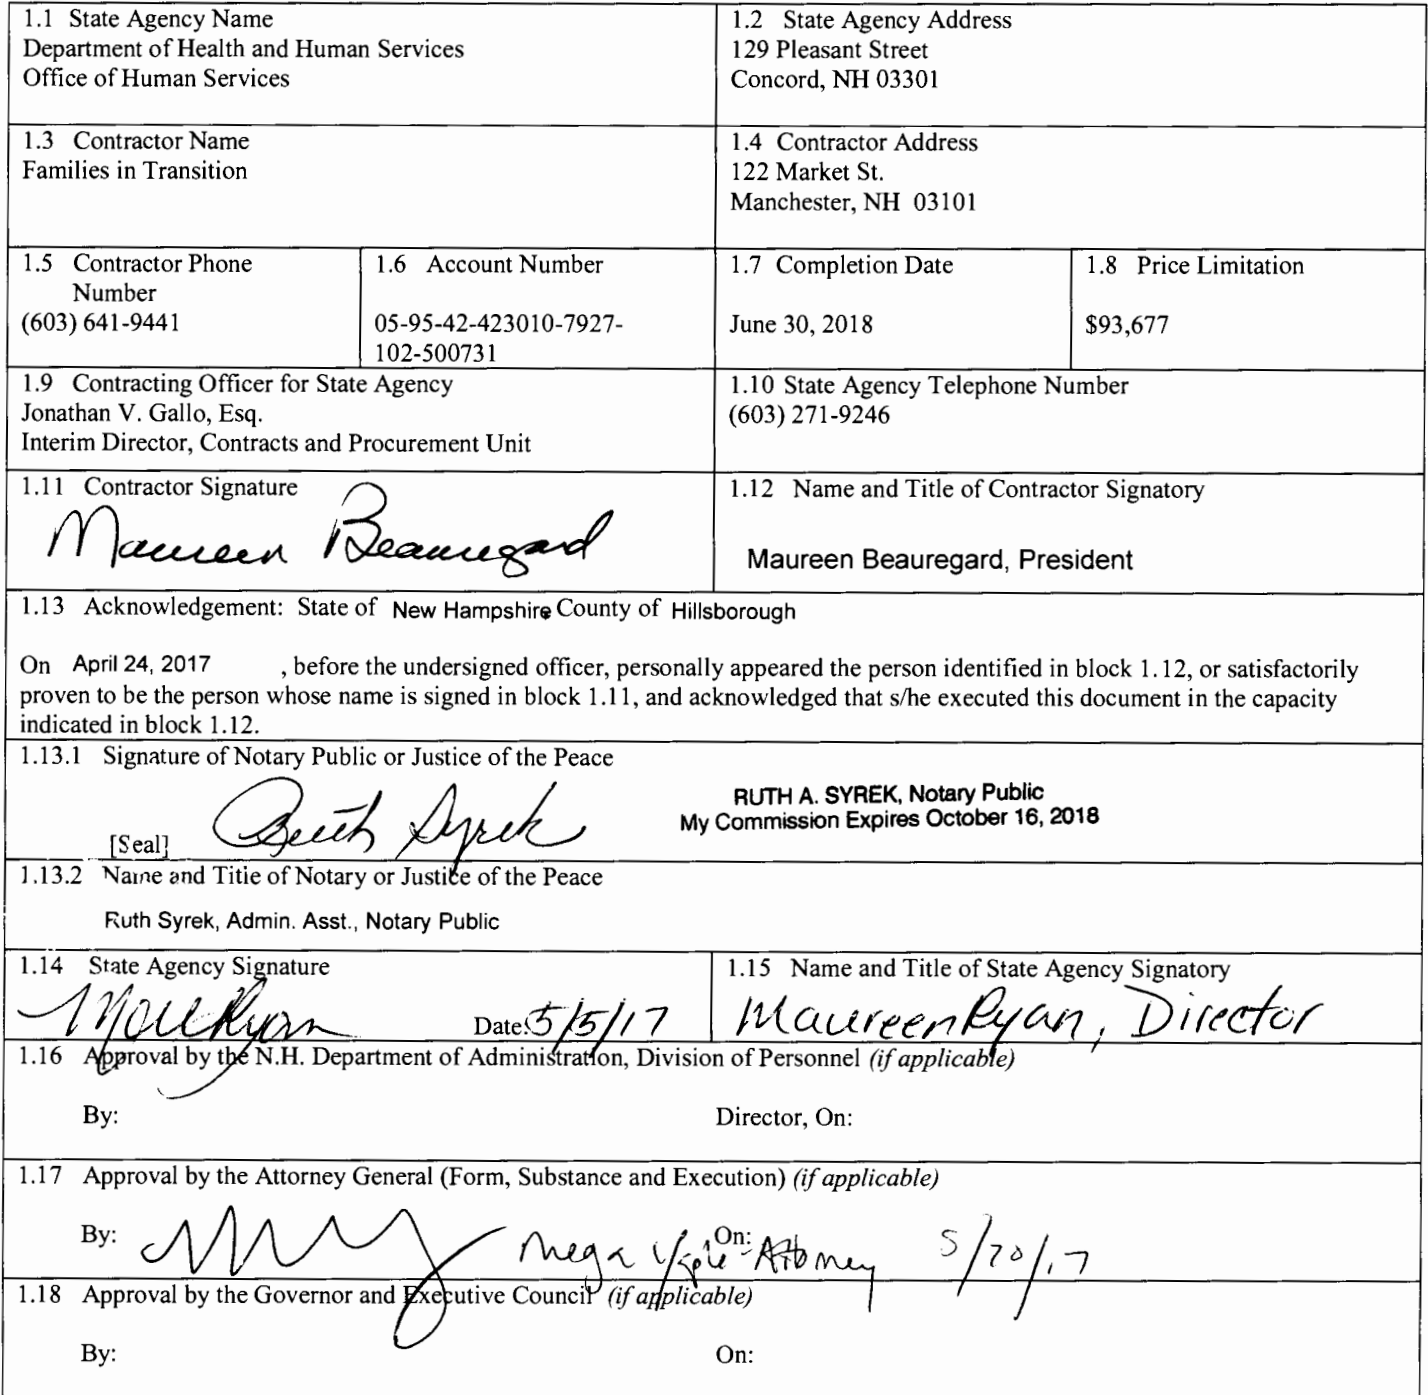 1.1 State Agency Name
Department of Health and Human Services
Office of Human Services
1.2 State Agency Address
129 Pleasant Street
Concord, NH 03301
1.3 Contractor Name
Families in Transition
1.4 Contractor Address
122 Market St.
Manchester, NH 03101
1.5 Contractor Phone
Number
(603) 641-9441
1.6 Account Number
05-95-42-423010-7927-
102-500731
1.7 Completion Date
June 30, 2018
1.8 Price Limitation
$93,677
1.9 Contracting Officer for State Agency
Jonathan V. Gallo, Esq.
Interim Director, Contracts and Procurement Unit
1.10 State Agency Telephone Number
(603) 271-9246
1.11 Contractor Signature
Maureen Beauregard
1.12 Name and Title of Contractor Signatory
Maureen Beauregard, President
1.13 Acknowledgement: State of New Hampshire County of Hillsborough
On April 24, 2017 , before the undersigned officer, personally appeared the person identified in block 1.12, or satisfactorily
proven to be the person whose name is signed in block 1.11, and acknowledged that s/he executed this document in the capacity
indicated in block 1.12.
1.13.1 Signature of Notary Public or Justice of the Peace
RUTH A. SYREK, Notary Public
My Commission Expires October 16, 2018
[Seal] Ruth Syrek
1.13.2 Name and Title of Notary or Justice of the Peace
Ruth Syrek, Admin. Asst., Notary Public
1.14 State Agency Signature
Date: 5/5/17
1.15 Name and Title of State Agency Signatory
Maureen Ryan, Director
1.16 Approval by the N.H. Department of Administration, Division of Personnel (if applicable)
By: Director, On:
1.17 Approval by the Attorney General (Form, Substance and Execution) (if applicable)
By: On: Attorney 5/20/17
1.18 Approval by the Governor and Executive Council (if applicable)
By: On: